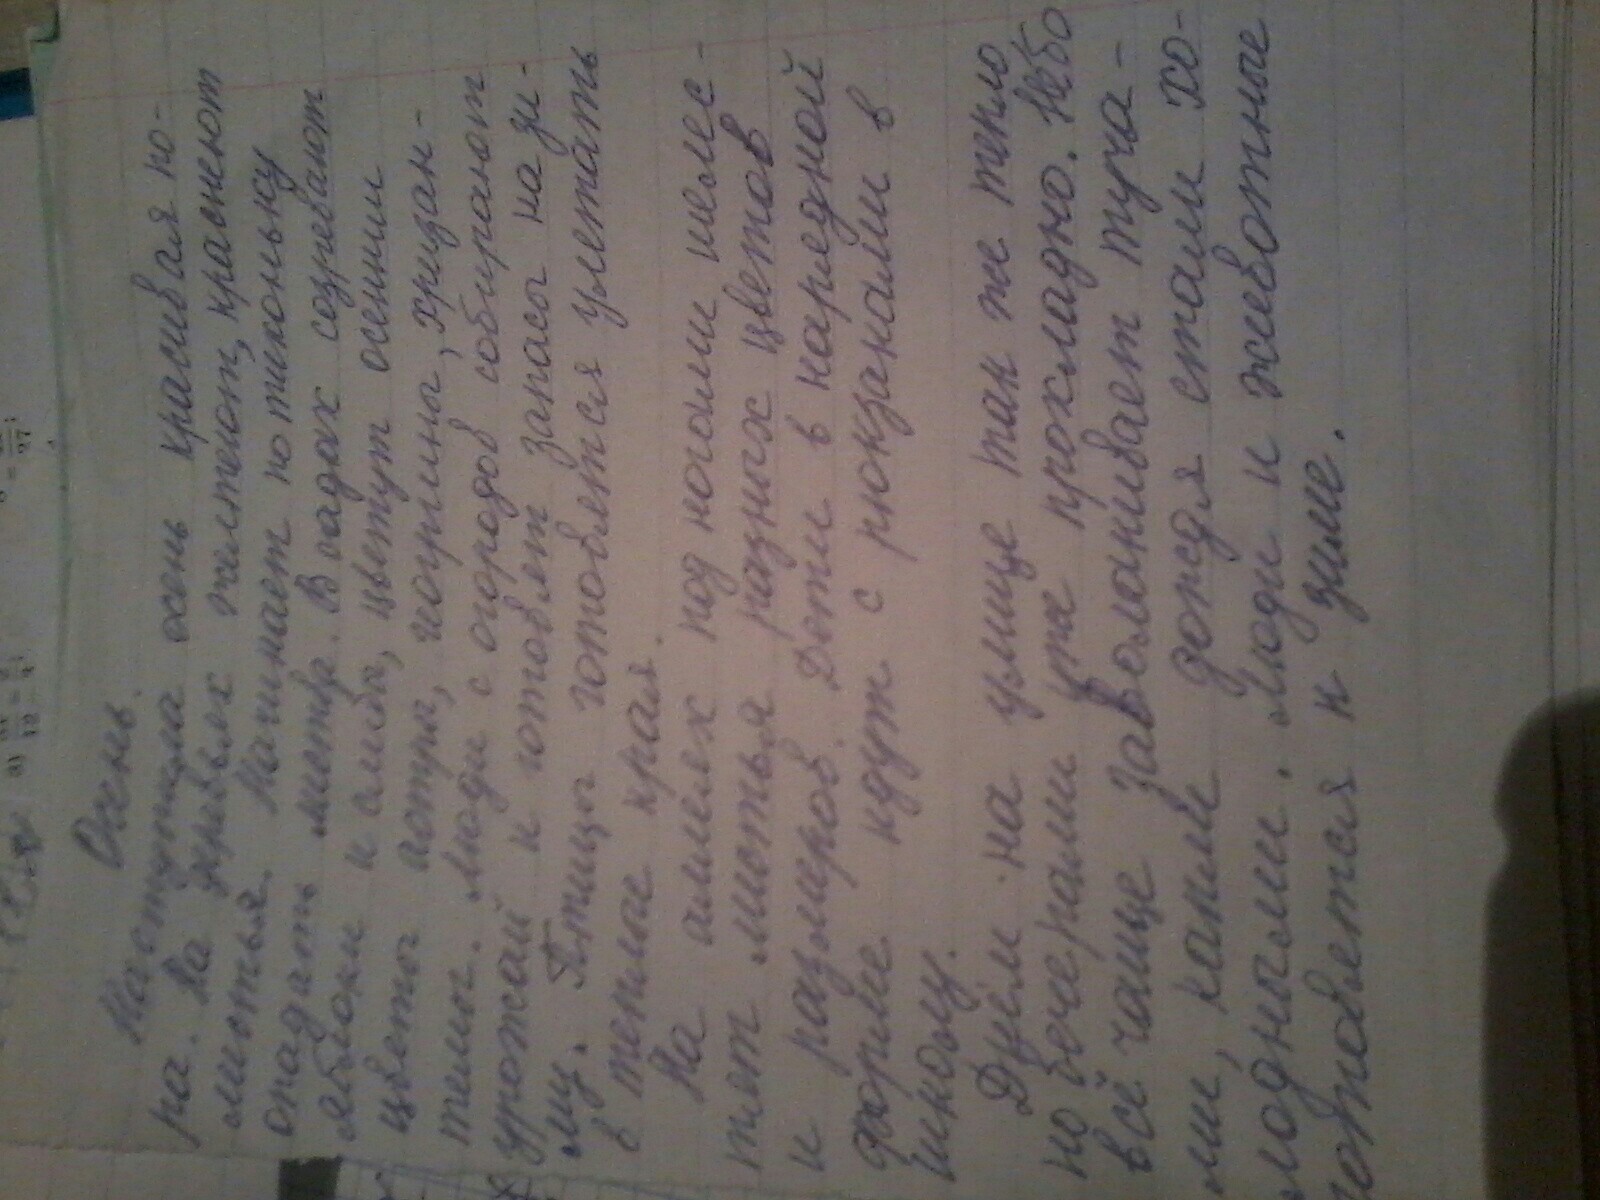 Осень.
Наступила осень красивая по-
ра. На деревьях желтеют, краснеют
листья. Начинает потихоньку
опадать листва. В садах созревают
яблоки и слива, цветут осеннии
цветы астры, георгины, хризан-
темы. Люди с огородов собирают
урожай и готовят запасы на зи-
му. Птицы готовятся улетать
в теплые края.
На аллеях под ногами шелес-
тят листья разных цветов
и размеров. Дети в нарядной
форме идут с рюкзаками в
школу.
Днём на улице так же тепло
но вечерами уже прохладно. Небо
всё чаще заволакивает туча-
ми, капли дождя стали хо-
лодными. Люди и животные
готовятся к зиме.